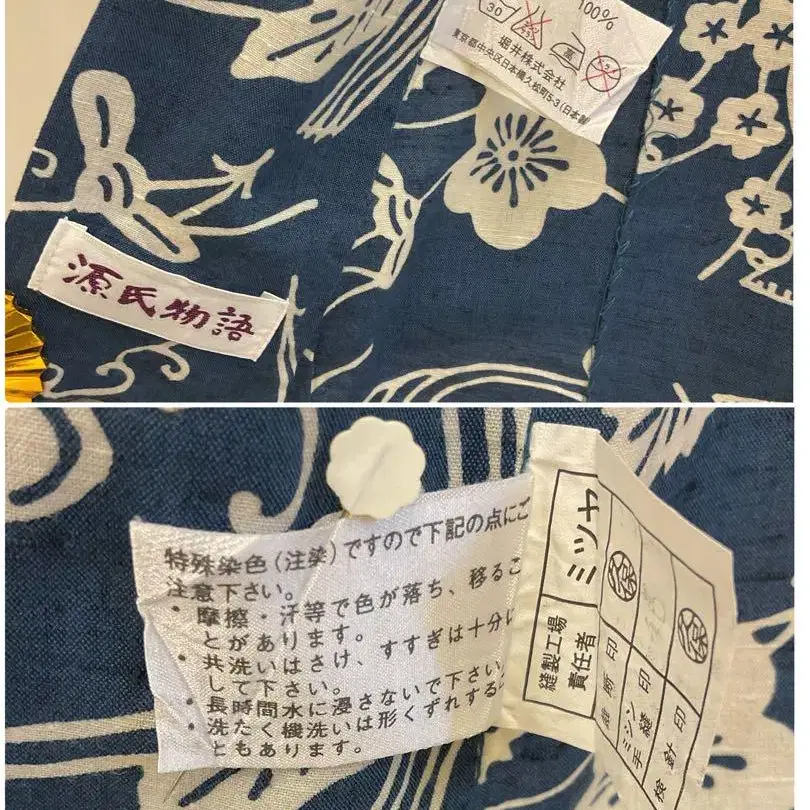 100%
30
堀井株式会社
東京都中央区日本橋久松町5-3(日本製
源氏物語
特殊染色(注染)ですので下記の点にご
注意下さい。
・摩擦・汗等で色が落ち、移るこ
とがあります。
・共洗いはさけ、すすぎは十分に
して下さい。
・長時間水に浸さないで下さい。
・洗たく機洗いは形くずれする
ともあります。
縫製工場 ミツヤ
責任者
断印
ミシン 縫印
手
検針印